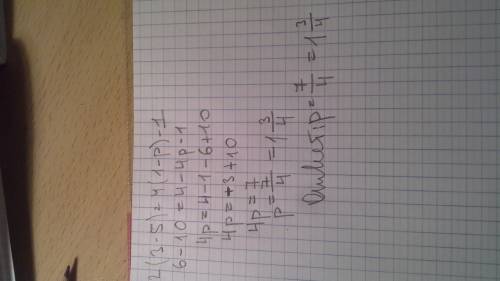 2(3-5)=4(1-p)-1
6-10=4-4p-1
4p=4-1-6+10
4p=-3+10
4p=7
p=7/4=1 3/4
Ответ: p=7/4=1 3/4